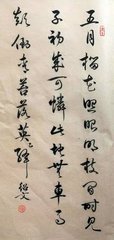 五月榴花照眼明枝間時見
子初成可憐此地無車馬
顛倒青苔落英絳